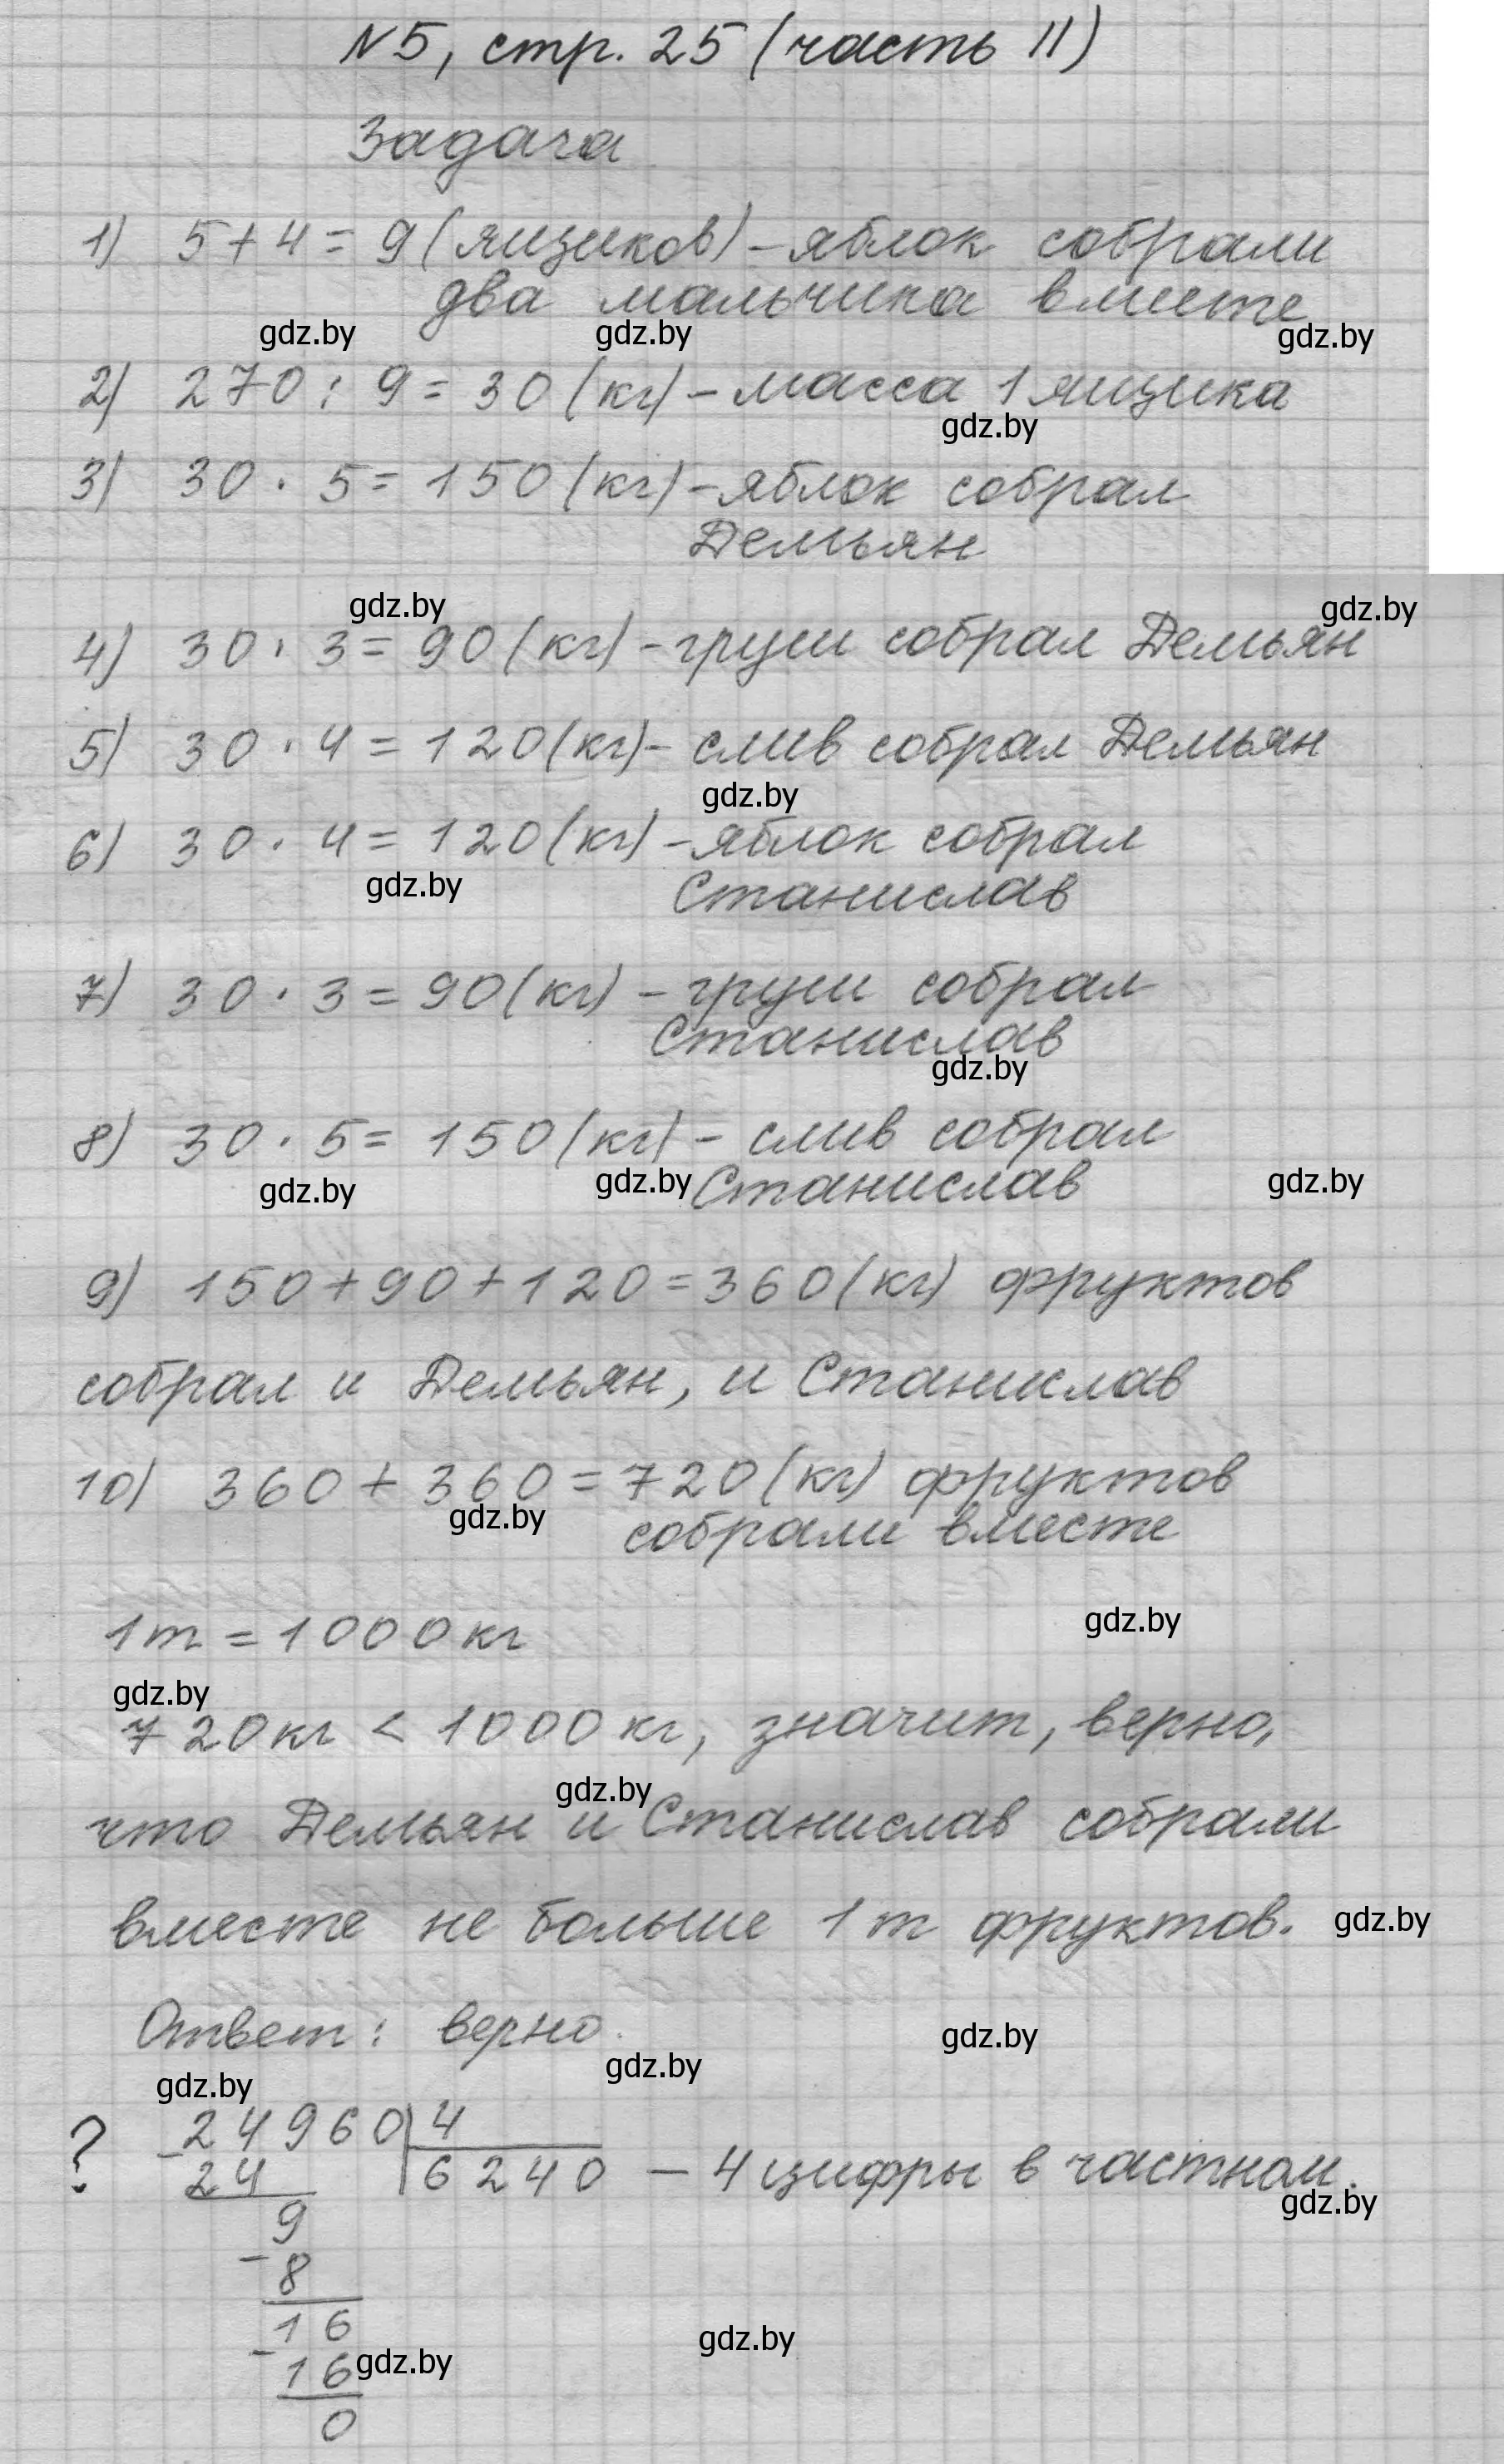 N5, стр. 25 (часть II)
Задача
1) 5+4=9(ящиков)-яблок собрали
два мальчика вместе
gdz.by gdz.by gdz.by
2) 270:9=30(кг)-масса 1 ящика
gdz.by
3) 30·5=150(кг)-яблок собрал
Демьян
gdz.by gdz.by
4) 30·3=90(кг)-груш собрал Демьян
5) 30·4=120(кг)-слив собрал Демьян
gdz.by
6) 30·4=120(кг)-яблок собрал
gdz.by Станислав
7) 30·3=90(кг)-груш собрал
Станислав
gdz.by
8) 30·5=150(кг)-слив собрал
gdz.by gdz.by Станислав gdz.by
9) 150+90+120=360(кг) фруктов
собрал и Демьян, и Станислав
10) 360+360=720(кг) фруктов
gdz.by собрали вместе
1т=1000кг gdz.by
gdz.by
720кг<1000кг, значит, верно,
gdz.by
что Демьян и Станислав собрали
вместе не больше 1т фруктов. gdz.by
Ответ: верно. gdz.by
gdz.by gdz.by
? -24960|4
24 6240 -4 цифры в частном.
gdz.by
9
-8
16 gdz.by
-16 gdz.by
0